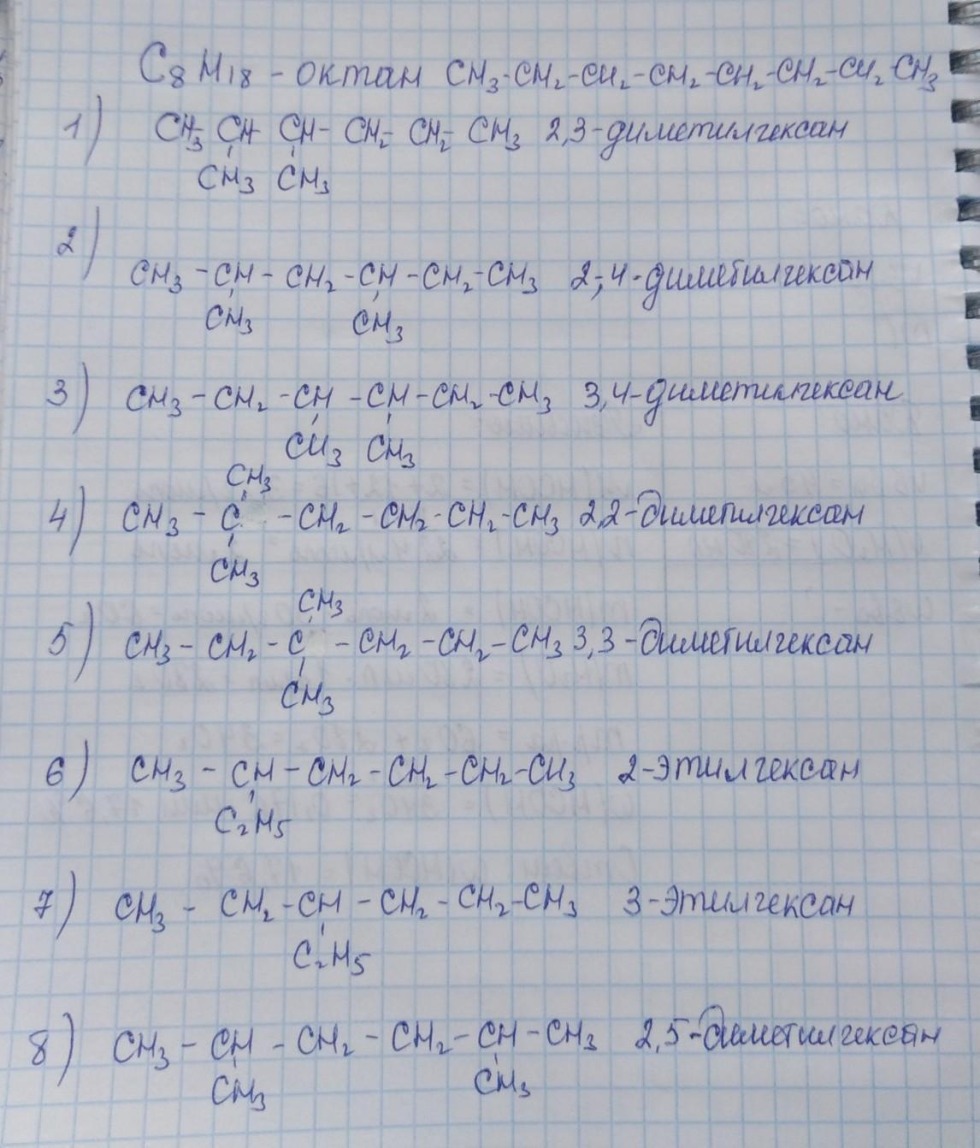 C₈H₁₈ - октан CH₃-CH₂-CH₂-CH₂-CH₂-CH₂-CH₂-CH₃
1) CH₃-CH-CH-CH₂-CH₂-CH₃ 2,3-диметилгексан
CH₃ CH₃
2)
CH₃-CH-CH₂-CH-CH₂-CH₃ 2,4-диметилгексан
CH₃ CH₃
3) CH₃-CH₂-CH-CH-CH₂-CH₃ 3,4-диметилгексан
CH₃ CH₃
CH₃
4) CH₃-C-CH₂-CH₂-CH₂-CH₃ 2,2-диметилгексан
CH₃
CH₃
5) CH₃-CH₂-C-CH₂-CH₂-CH₃ 3,3-диметилгексан
CH₃
6) CH₃-CH-CH₂-CH₂-CH₂-CH₃ 2-этилгексан
C₂H₅
7) CH₃-CH₂-CH-CH₂-CH₂-CH₃ 3-этилгексан
C₂H₅
8) CH₃-CH-CH₂-CH₂-CH-CH₃ 2,5-диметилгексан
CH₃ CH₃